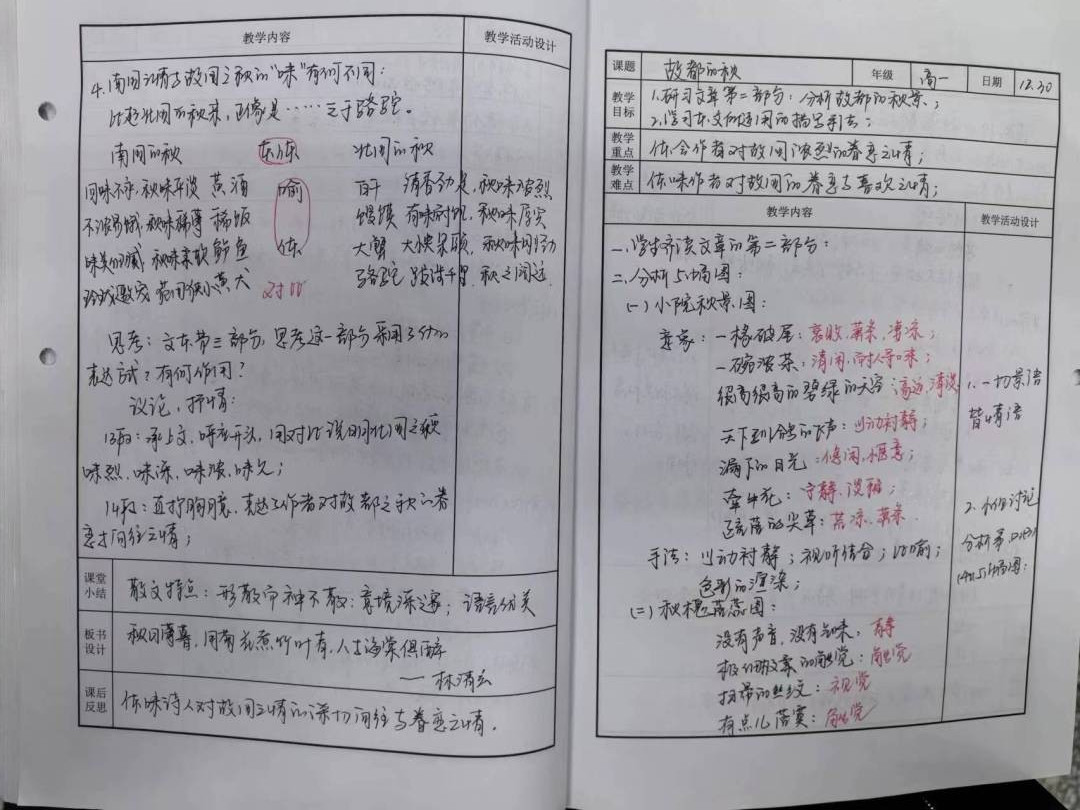 教学内容
教学活动设计
4.南国之秋与故国之秋的“味”有何不同:
比起北国的秋来,正像是……之于骆驼。
南国的秋
本体
北国的秋
回味不永,秋味平淡 黄酒
喻
白干 清香劲足,秋味浓烈
秋味稀薄 稀饭
馍馍 有味耐饥,秋味厚实
鲈鱼
体
大蟹 大快朵颐,秋味
黄犬
对比
骆驼
思考:文本第三部分,思考这一部分采用了什么
表达方式?有何作用?
议论,抒情:
13段:承上文,呼应开头,用对比说明北国之秋
味烈,味深,味浓,味久;
14段:直抒胸臆,表达了作者对故都之秋的眷
恋向往之情;
课堂
小结
散文特点:形散而神不散;意境深邃;语言优美
板书
设计
秋日薄暮,用菊花煮竹叶青,人与海棠俱醉
——林清玄
课后
反思
体味诗人对故国之情的深切向往与眷恋之情。
课题
故都的秋
年级
高一
日期
12.30
教学
目标
1.研习文章第二部分:分析故都的秋景;
2.学习本文所运用的描写手法;
教学
重点
体会作者对故国浓烈的眷恋之情;
教学
难点
体味作者对故国的眷恋与喜欢之情;
教学内容
教学活动设计
一、学生齐读文章的第二部分:
二、分析5幅图:
(一)小院秋景图:
意象:一椽破屋:衰败,萧条,凄凉;
一碗浓茶:清闲,耐人寻味;
很高很高的碧绿的天空:高远,清淡
1.一切景语
皆情语
天下驯鸽的飞声:以动衬静;
漏下的日光:悠闲,惬意;
牵牛花:宁静,淡雅;
疏落的尖草:荒凉,萧条.
2.小组讨论
分析第
5幅图:
手法:以动衬静;视听结合;比喻;
色彩的渲染;
(二)秋槐落蕊图:
没有声音,没有气味,静
极细极柔的触觉:触觉
扫帚的丝纹:视觉
有点儿落寞:触觉